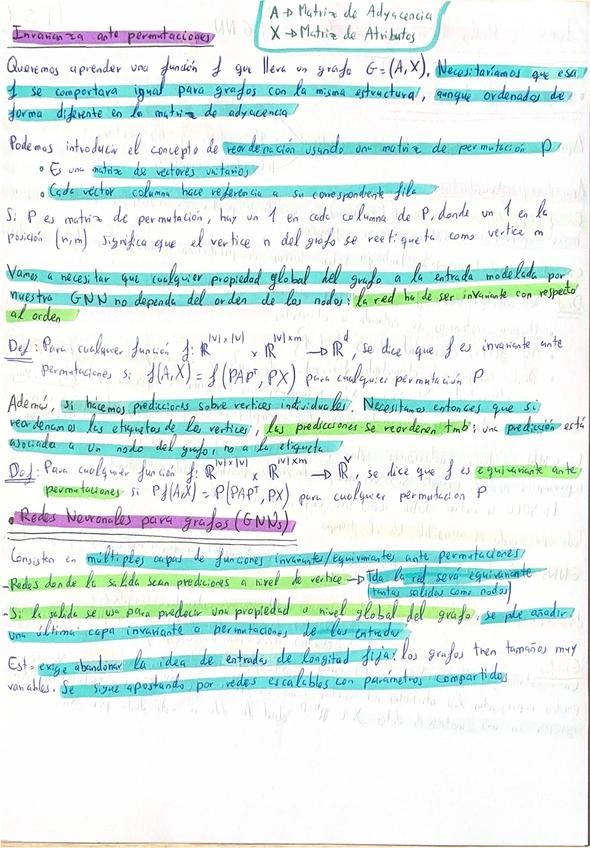 A → Matriz de Adyacencia
X → Matriz de Atributos
Invarianza ante permutaciones
Queremos aprender una función f que lleva un grafo G=(A,X). Necesitaríamos que esa
f se comportara igual para grafos con la misma estructura, aunque ordenados de
forma diferente en la matriz de adyacencia
Podemos introducir el concepto de reordenación usando una matriz de permutación P
• Es una matriz de vectores unitarios
• Cada vector columna hace referencia a su correspondiente fila
Si P es matriz de permutación, hay un 1 en cada columna de P, donde un 1 en la
posición (n,m) significa que el vertice n del grafo se reetiqueta como vertice m
Vamos a necesitar que cualquier propiedad global del grafo a la entrada modelada por
nuestra GNN no dependa del orden de los nodos: la red ha de ser invariante con respecto
al orden
Def: Para cualquier función f: ℝ^|V|x|V| x ℝ^|V|xm → ℝ^d, se dice que f es invariante ante
permutaciones si f(A,X) = f(PAPᵀ, PX) para cualquier permutación P
Además, si hacemos predicciones sobre vertices individuales. Necesitamos entonces que si
reordenamos las etiquetas de los vertices, las predicciones se reordenen tmb: una predicción está
asociada a un nodo del grafo, no a la etiqueta
Def: Para cualquier función f: ℝ^|V|x|V| x ℝ^|V|xm → ℝ^V, se dice que f es equivariante ante
permutaciones si Pf(A,X) = P(PAPᵀ, PX) para cualquier permutación P
• Redes Neuronales para grafos (GNNs)
Consisten en múltiples capas de funciones invariante/equivariantes ante permutaciones
-Redes donde la salida sean prediciones a nivel de vertice → Tda la red será equivariante
(tantas salidas como nodos)
-Si la salida se usa para predecir una propiedad a nivel global del grafo, se pde añadir
una última capa invariante a permutaciones de las entradas
Esto exige abandonar la idea de entradas de longitud fija: los grafos tnen tamaños muy
variables. Se sigue apostando por redes escalables con parámetros compartidos